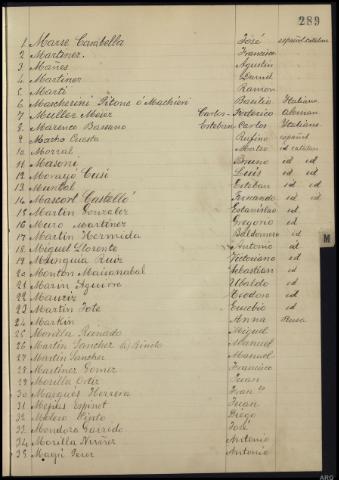 289
1 Marsé Carabella José español catalan
2 Martinez. Francisco
3 Mañes Agustin
4 Martinez Daniel
5 Martí Ramon
6 Mascherini Pitone ó Machieri Basilio Italiano
7 Muller Meier Carlos-Federico aleman
8 Marenco Bassano Esteban Carlos Italiano
9 Macho Cuesta Rufino español
10 Morral Mateo id catalan
11 Masoni Bruno id id
12 Morayó Cusi Luis id id
13 Muntal Esteban id id
14 Mascort Castelló Fernando id id
15 Martin Gonzalez Estanislao id
16 Muro Martinez Gregorio id
17 Martin Hermida Baldomero id
18 Miguel Llorente Antonio id
19 Munguia Ruiz Victoriano id
20 Montón Sebastian id
21 Marin Aguirre Ubaldo id
22 Mauriz Teodoro id
23 Martin Tote Eusebio id
24 Markin Anna Rusa
25 Morilla Reinado Miguel
26 Martin Sanchez Manuel
27 Martin Sanchez Manuel
28 Martinez Gomez Francisco
29 Morilla Ortiz Juan
30 Marqués Herrera
31 Mejias Espinet Juan
32 Melero Pinto Diego
33 Mendoza Garrido José
34 Morilla Antonio
35 Perez Antonio
M
ARG